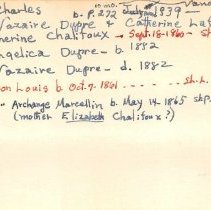 Charles
b. P. 272 1939 -
Nazaire Dupre & Catherine Laf
herine Chalifoux - Sept. 18-1860 - St
Angelica Dupre - b. 1882
Nazaire Dupre - d. 1882
on Louis b Oct. 7. 1881 - - - - - St. L.
- Archange Marcellin b. May 14-1865 stp.
(mother Elizabeth Chalifoux?)